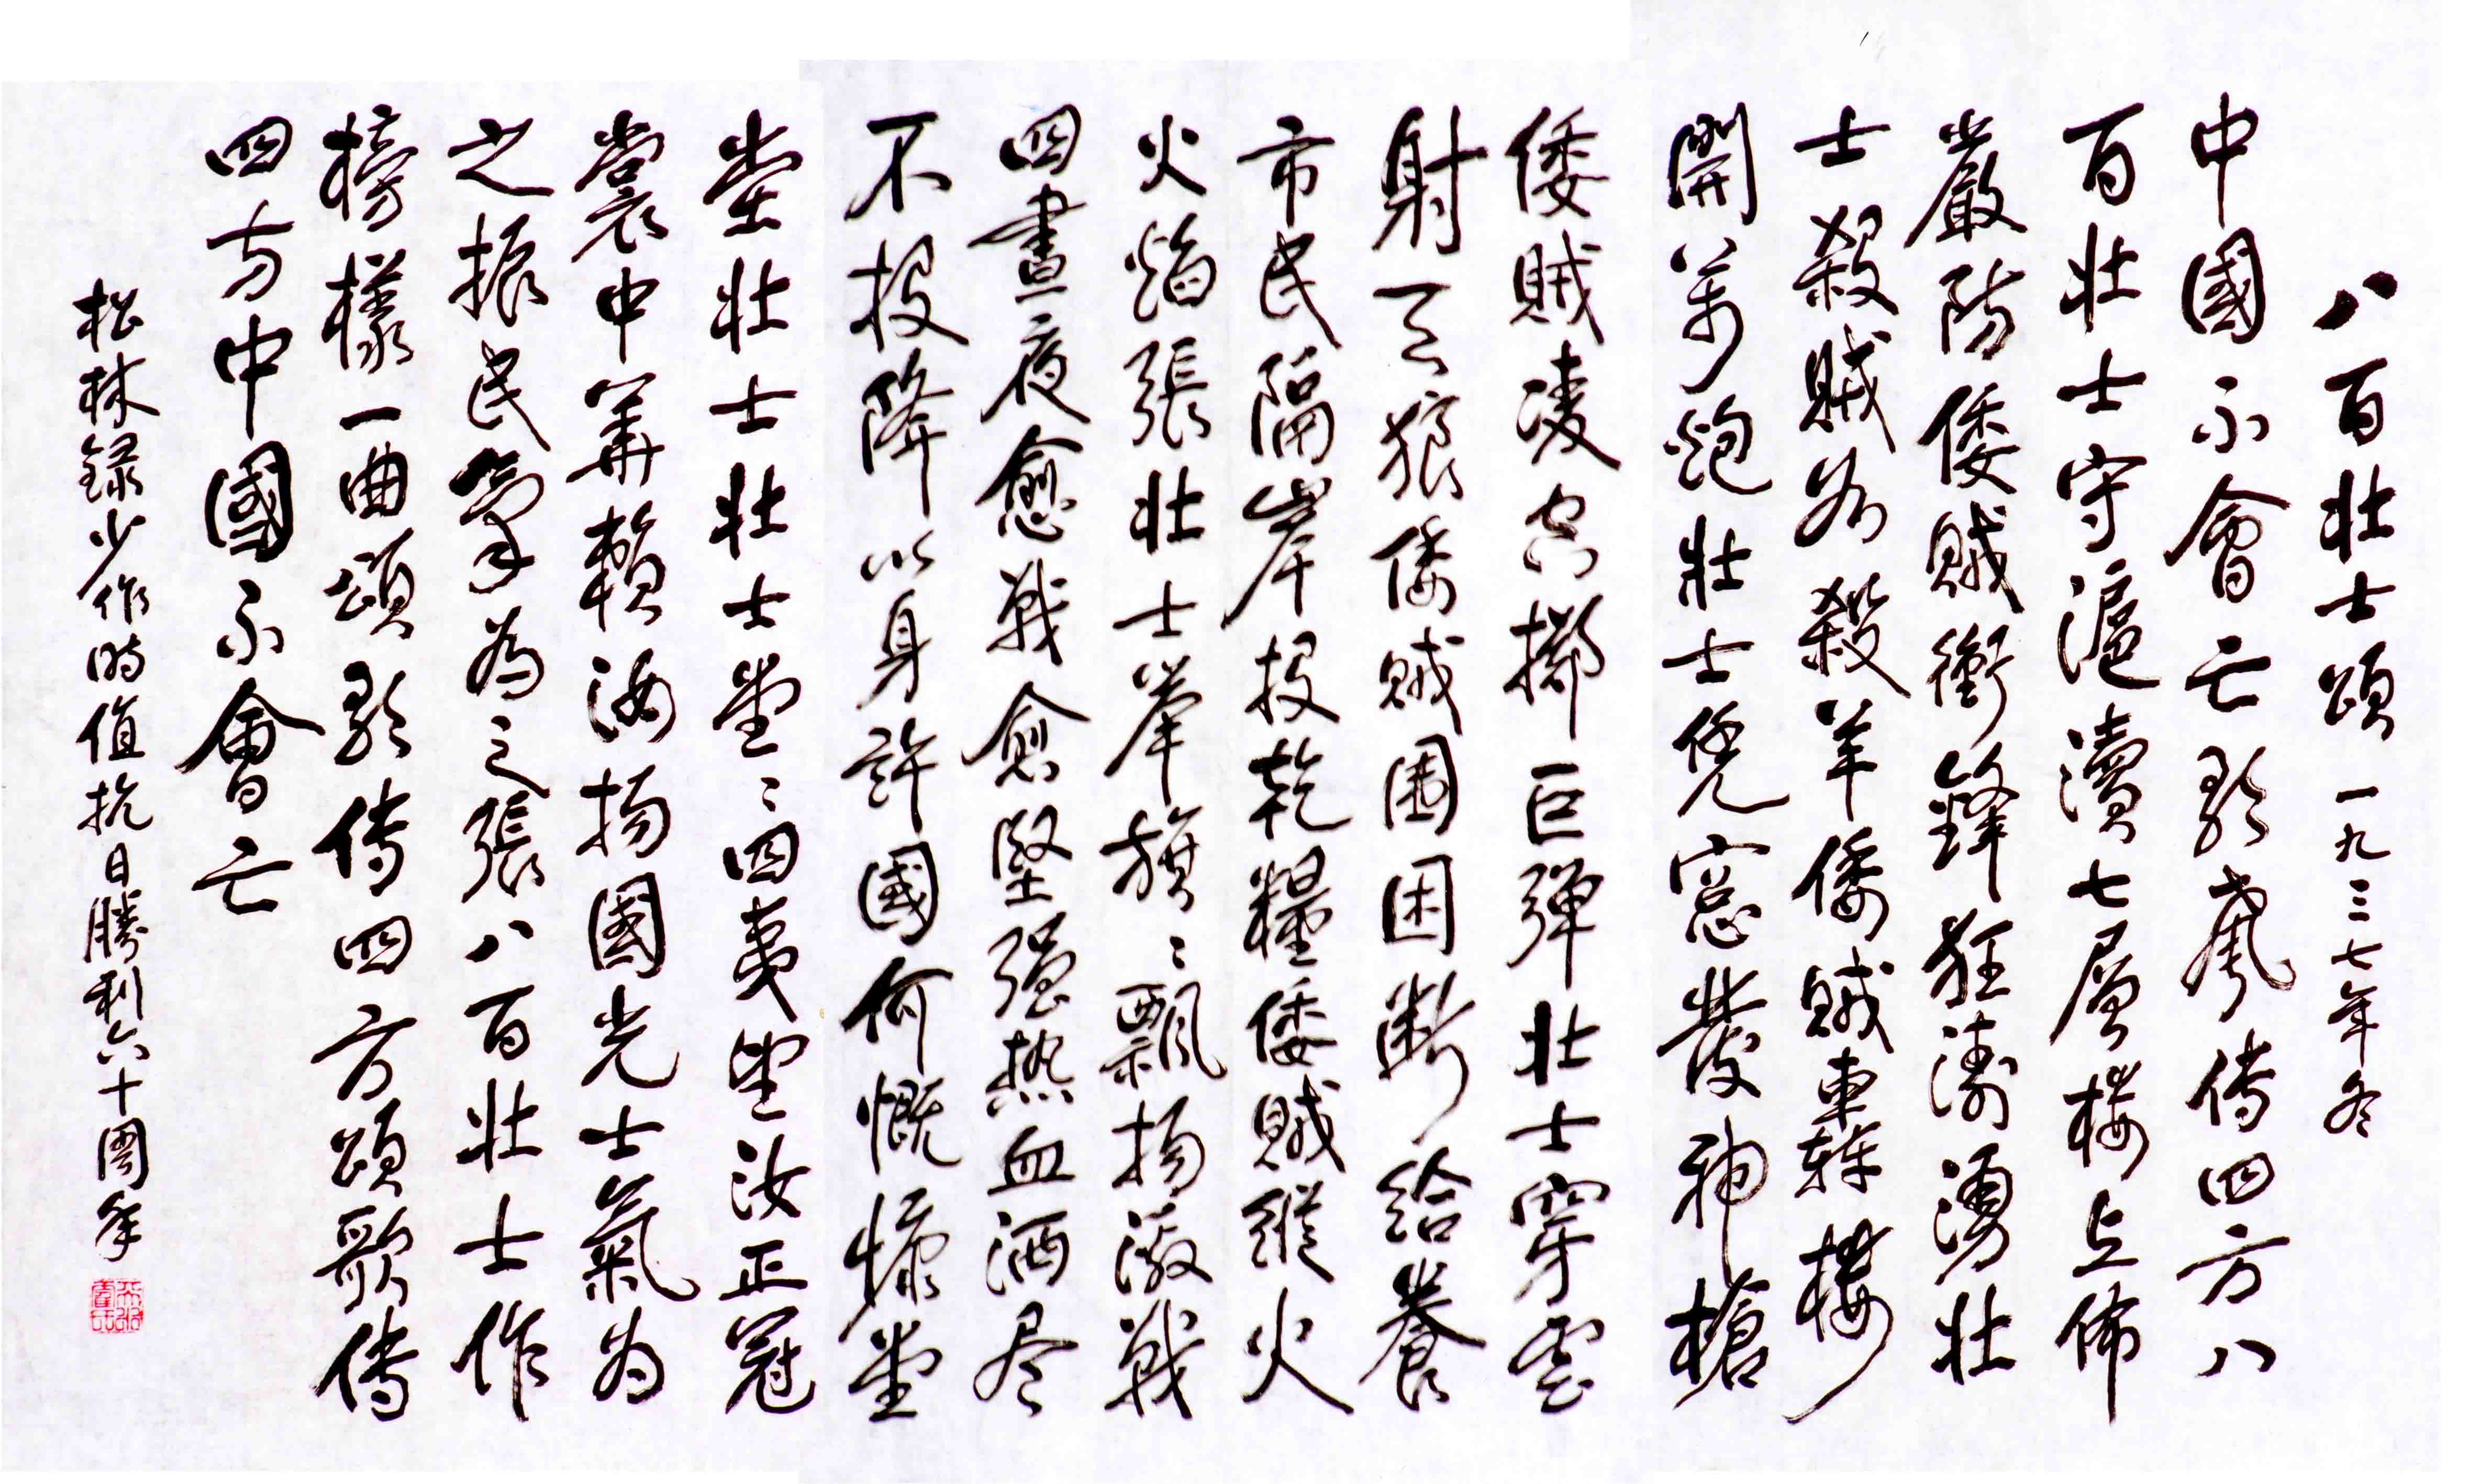 八百壯士頌 一九三七年冬
中國不會亡歌聲傳四方八
百壯士守滬瀆七層樓上佈
嚴防倭賊衝鋒狂濤湧壯
士殺賊如殺羊倭賊車輇樓
開萬炮壯士凭窓發神槍
倭賊凌空擲巨弹壯士穿雲
射天狼倭賊圍困断給養
市民隔岸投乾糧倭賊縱火
火焰張壯士举旗〻飄揚激戰
四晝夜愈戰愈堅强热血洒尽
不投降以身許國何慨慷堂
堂壯士壯士堂〻四夷望汝正冠
裳中華賴汝揚國光士氣为
之振民氣為之張八百壯士作
榜樣一曲頌歌传四方頌歌传
四方中國不會亡
松林録少作時值抗日勝利六十周年